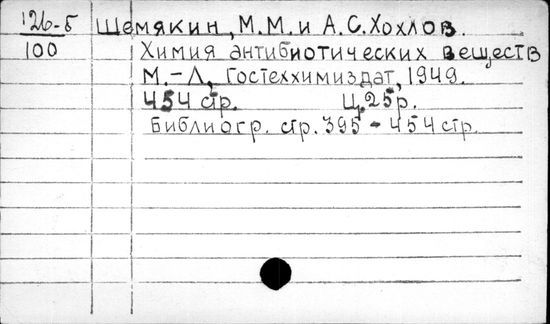 126-б Шемякин, М.М. и А.С. Хохлов.
100 Химия антибиотических веществ
М.-Л., Гостеххимиздат, 1949.
454 стр. Ц. 25р.
Библиогр. стр. 395 - 454 стр.